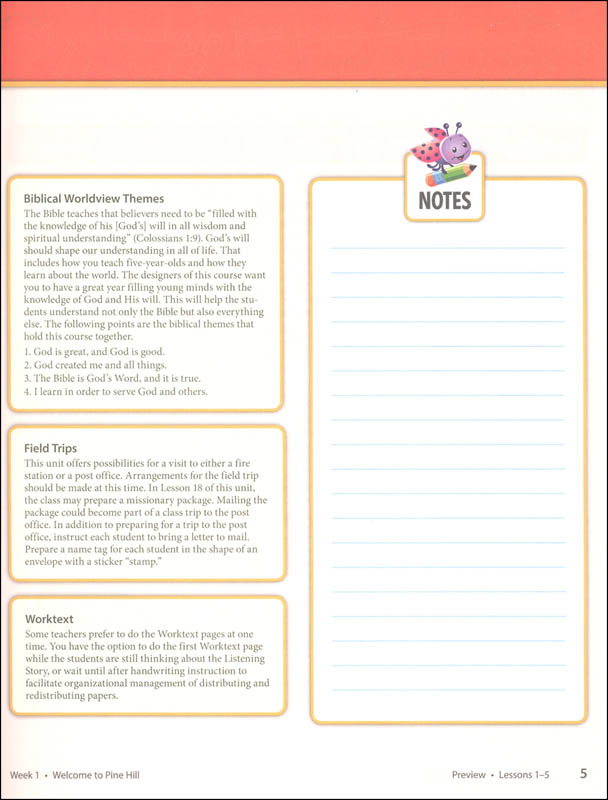 Biblical Worldview Themes
The Bible teaches that believers need to be “filled with
the knowledge of his [God’s] will in all wisdom and
spiritual understanding” (Colossians 1:9). God’s will
should shape our understanding in all of life. That
includes how you teach five-year-olds and how they
learn about the world. The designers of this course want
you to have a great year filling young minds with the
knowledge of God and His will. This will help the stu-
dents understand not only the Bible but also everything
else. The following points are the biblical themes that
hold this course together.
1. God is great, and God is good.
2. God created me and all things.
3. The Bible is God’s Word, and it is true.
4. I learn in order to serve God and others.
Field Trips
This unit offers possibilities for a visit to either a fire
station or a post office. Arrangements for the field trip
should be made at this time. In Lesson 18 of this unit,
the class may prepare a missionary package. Mailing the
package could become part of a class trip to the post
office. In addition to preparing for a trip to the post
office, instruct each student to bring a letter to mail.
Prepare a name tag for each student in the shape of an
envelope with a sticker “stamp.”
Worktext
Some teachers prefer to do the Worktext pages at one
time. You have the option to do the first Worktext page
while the students are still thinking about the Listening
Story, or wait until after handwriting instruction to
facilitate organizational management of distributing and
redistributing papers.
NOTES
Week 1 • Welcome to Pine Hill
Preview • Lessons 1–5 5